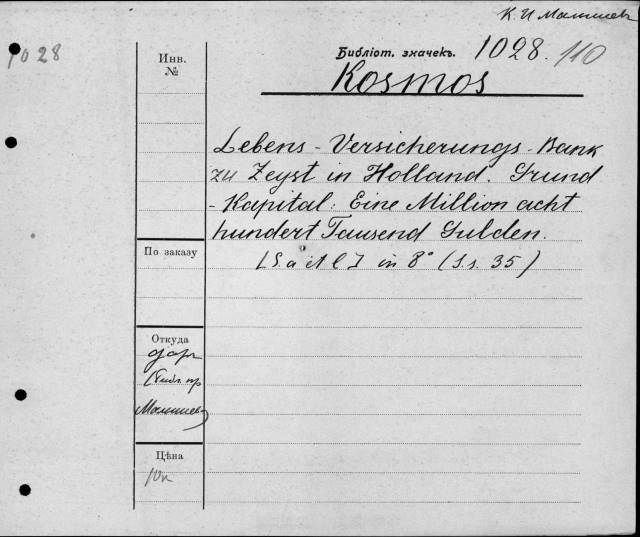 К. И. Малышев
1028
Инв.
№
Библіот. значекъ. 1028. 110
Kosmos
Lebens - Versicherungs - Bank
zu Zeyst in Holland. Grund
- Kapital: Eine Million acht
hundert Tausend Gulden.
in 8° (S.s. 35)
По заказу
Откуда
даръ
Малышев
Цѣна